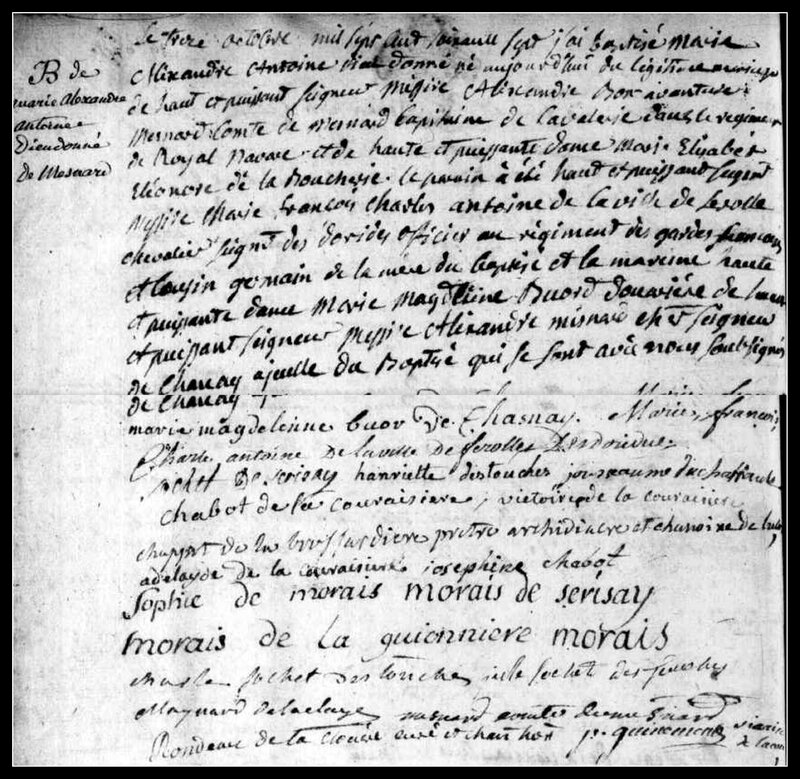 B de
marie alexandre
antoine
Dieudonné
De Mesnard
Le treze octobre mil sept cent soixante sept j'ai baptisé marie
Alexandre Antoine dieudonné né aujourd'huy du légitime mariage
de haut et puissant Seigneur Messire Alexandre Bonaventure
Mesnard Comte de Mesnard Capitaine de Cavalerie dans le regiment
de Royal Navare et de haute et puissante dame Marie Elizabet
Eléonore de la Boucherie. le parain à été haut et puissant Seigneur
Messire Marie François Charles antoine de la ville de ferolle
chevalier seignr des dorides officier au régiment des gardes françoises
et cousin germain de la mère du baptisé et la mareine haute
et puissante dame Marie Magdeleine Buord douairière de haut
et puissant seigneur Messire Alexandre mesnard cher Seigneur
de Chanay ajeulle du Baptisé qui se sont avec nous soubsignés
de Chanay
marie magdelenne buor De Chasnay. Marie françois
Charle antoine De laville de ferolles Desdorides
pohet De serisay hanriette destouches
chabot de la couraisiere, victoire de la couraisiere
chappot de la brossardiere pretre archidiacre et chanoine de
adelayde de la couraisiere josephine chabot
Sophie de morais morais de serisay
morais de la guionniere morais
charle pochet destouches
Maynard delaclaye mesnard comte
Rondeau de la